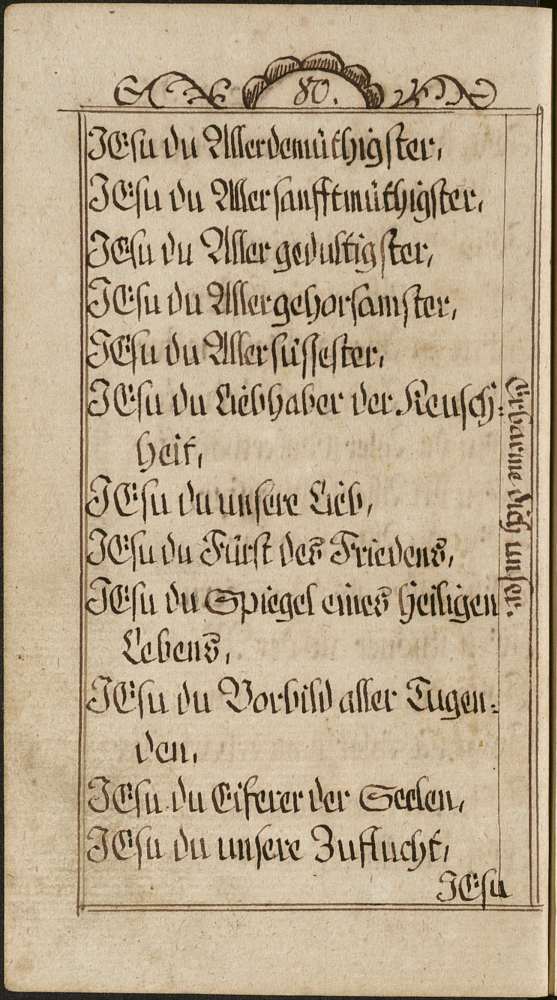 80.
JEsu du Allerdemüthigster,
JEsu du Allersanfftmüthigster,
JEsu du Allergedultigster,
JEsu du Allergehorsamster,
JEsu du Allersüssester,
JEsu du Liebhaber der Keusch-
heit,
JEsu du unsere Lieb,
JEsu du Fürst des Friedens,
JEsu du Spiegel eines Heiligen
Lebens,
JEsu du Vorbild aller Tugen-
den,
JEsu du Eiferer der Seelen,
JEsu du unsere Zuflucht,
JEsu
Erbarme dich unser.